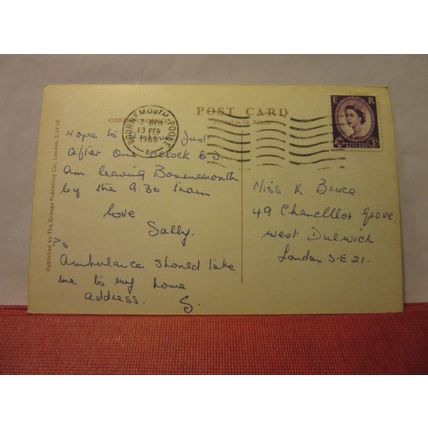 POST CARD
BOURNEMOUTH-POOLE
13 FEB
1966
E R
3D
Hope to arrive Just
After One O'clock
am leaving Bournemouth
by the 9.30 train
love
Sally.
Ps
Ambulance should take
me to my home
address. S.
Miss R Bruce
49 Chancellor Grove
West Dulwich
London S.E 21.
Published by The Grange Publishing Co., London, S.W.19